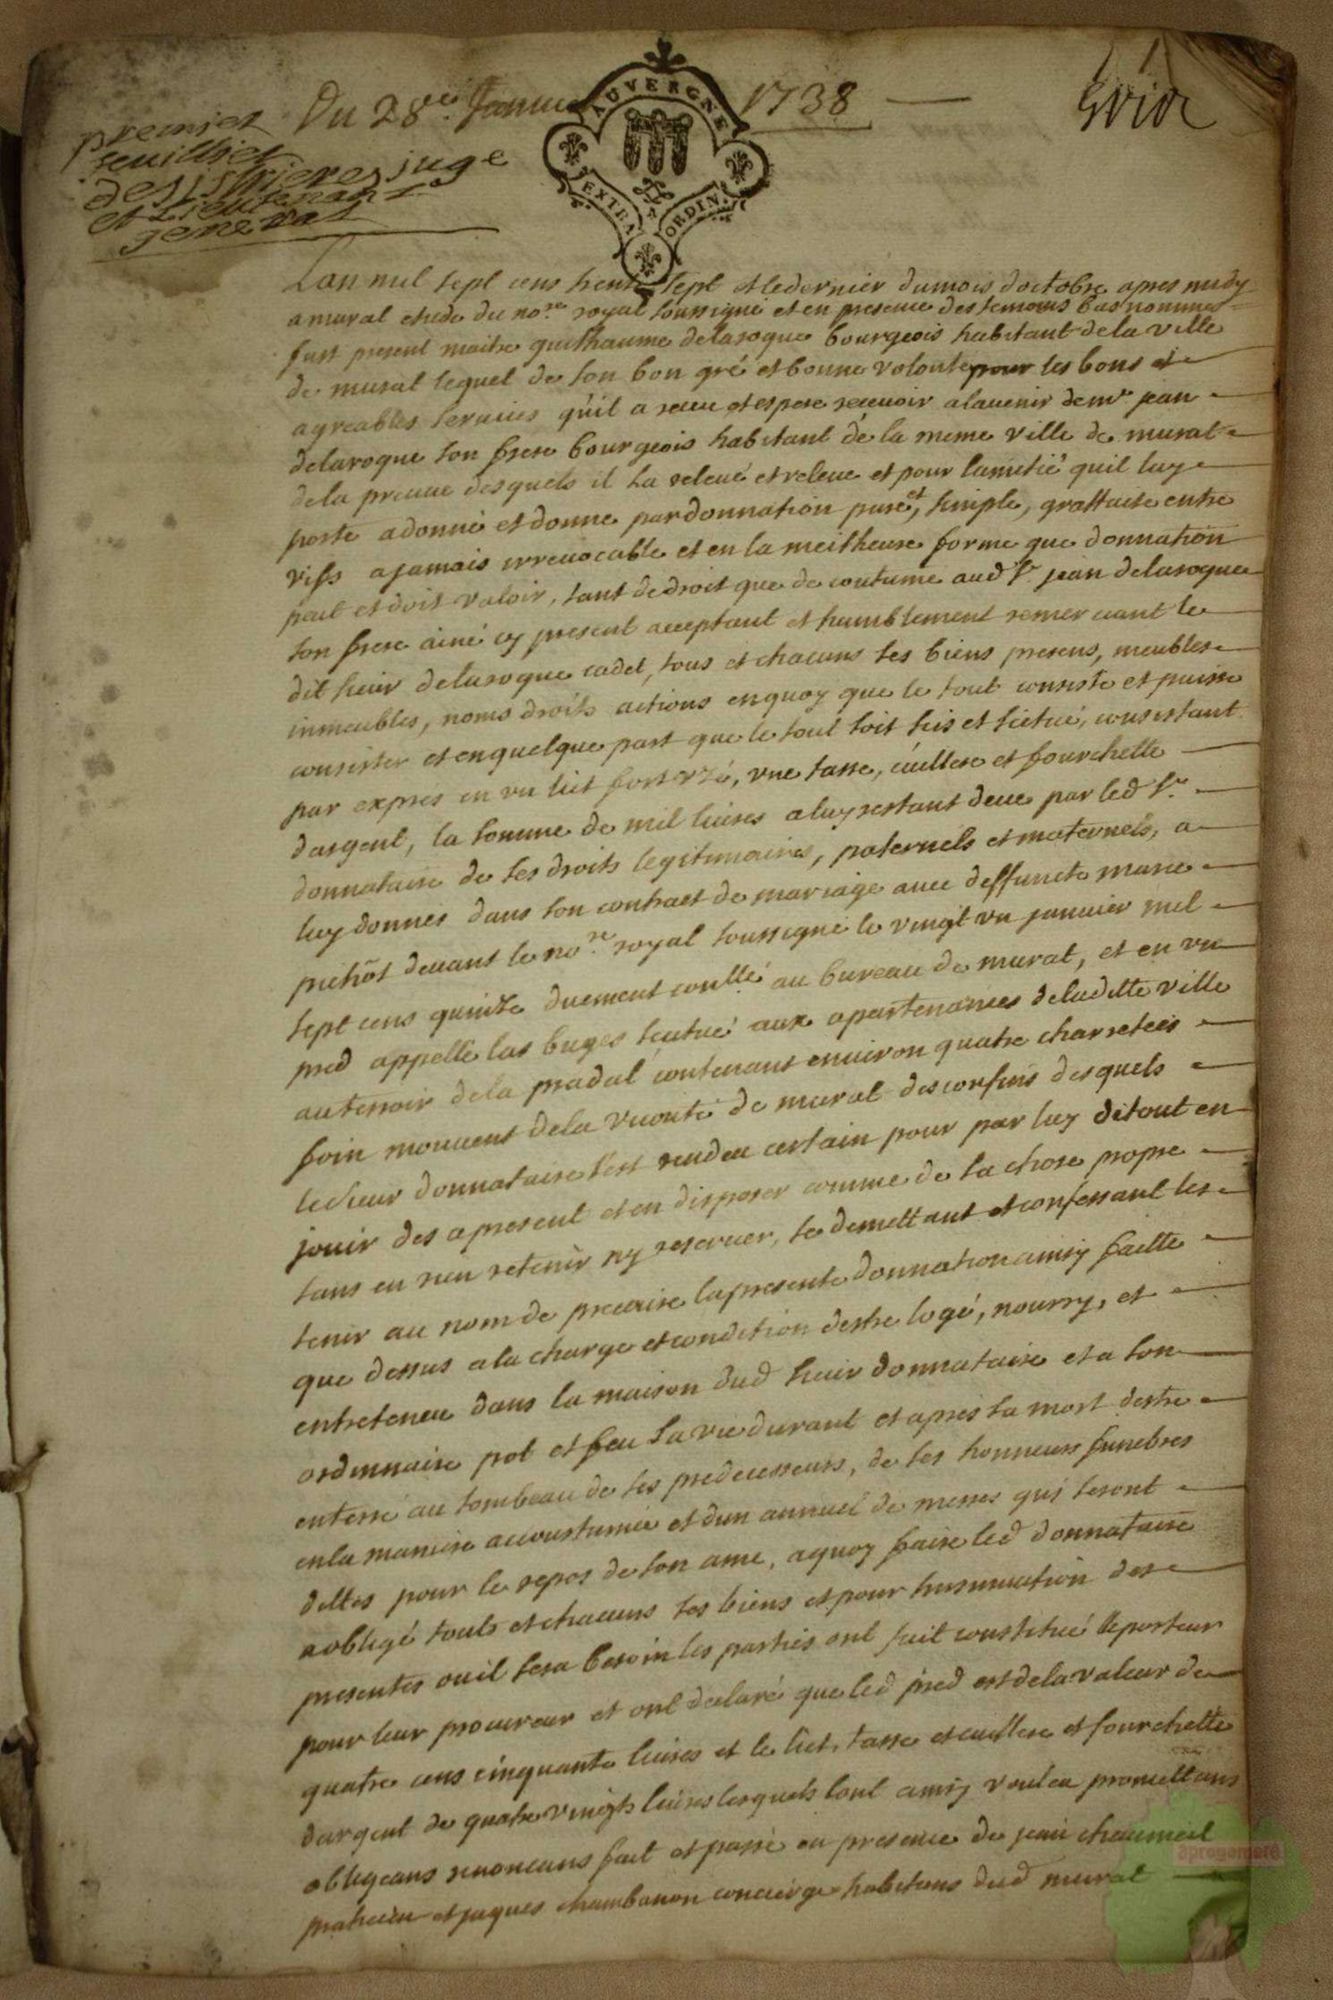 Du 28e. Janvier 1738
premier
feuillet
desistrieres juge
et Lieutenant
general
AUVERGNE
EXTRA ORDIN.
Lan mil sept cens trente sept et le dernier du mois doctobre apres midy
a murat etude du nore. royal soussigné et en presence des temoins bas nommés
fust present maitre guilhaume delaroque bourgeois habitant de la ville
de murat lequel de son bon gré et bonne volonte pour les bons et
agreables services quil a receu et espere recevoir a lavenir de mr jean
delaroque son frere bourgeois habitant de la meme ville de murat
de la preuve desquels il la relevé et releve et pour lamitié quil luy
porte a donné et donne par donnation pure et, simple, grattuite entre
vifs a jamais irrevocable et en la meilheure forme que donnation
peut et doit valoir, tant de droit que de coutume aud Sr. jean delaroque
son frere ainé cy present acceptant et humblement remerciant le
dit sieur delaroque cadet, tous et chacuns ses biens presens, meubles
inmeubles, noms droits actions en quoy que le tout consiste et puisse
consister et en quelque part que le tout soit sis et situé, consistant
par expres en un lict fort uzé, une tasse, cuillere et fourchette
dargent, la somme de mil livres a luy restant deue par led Sr.
donnataire de ses droits legitimaires, paternels et maternels, a
luy donnés dans son contract de mariage avec deffuncte marie
pichot devant le nore. royal soussigné le vingt un janvier mil
sept cens quinze duement conllé au bureau de murat, et en un
pred appellé las buges scitué aux apartenances de ladite ville
au terroir de la pradal contenant environ quatre charretées
foin mouvent de la vicomté de murat des confins desquels
le sieur donnataire sest rendeu certain pour par luy ditout en
jouir des apresent et en disposer comme de sa chose propre
sans en rien retenir ny reserver, se demettant et confessant les
tenir au nom de precaire la presente donnation ainsy faitte
que dessus a la charge et condition destre logé, nourry, et
entreteneu dans la maison dud sieur donnataire et a son
ordinnaire pot et feu sa vie durant et apres sa mort destre
enterré au tombeau de ses predecesseurs, de ses honneurs funebres
en la maniere accoustumée et dun annuel de messes qui seront
dittes pour le repos de son ame, a quoy faire led donnataire
a obligé touts et chacuns ses biens et pour linsinuation des
presentes ou il sera besoin les parties ont fait constitué le porteur
pour leur procureur et ont declaré que led pred est de la valeur de
quatre cens cinquante livres et le lict, tasse et cuillere et fourchette
dargent de quatre vingts livres lesquels lont ainsy vouleu promettans
obligeans renoncans fait et passé en presence de jean chaumeil
praticien et jaques chambanon concierge habitans dud murat
aprogemere